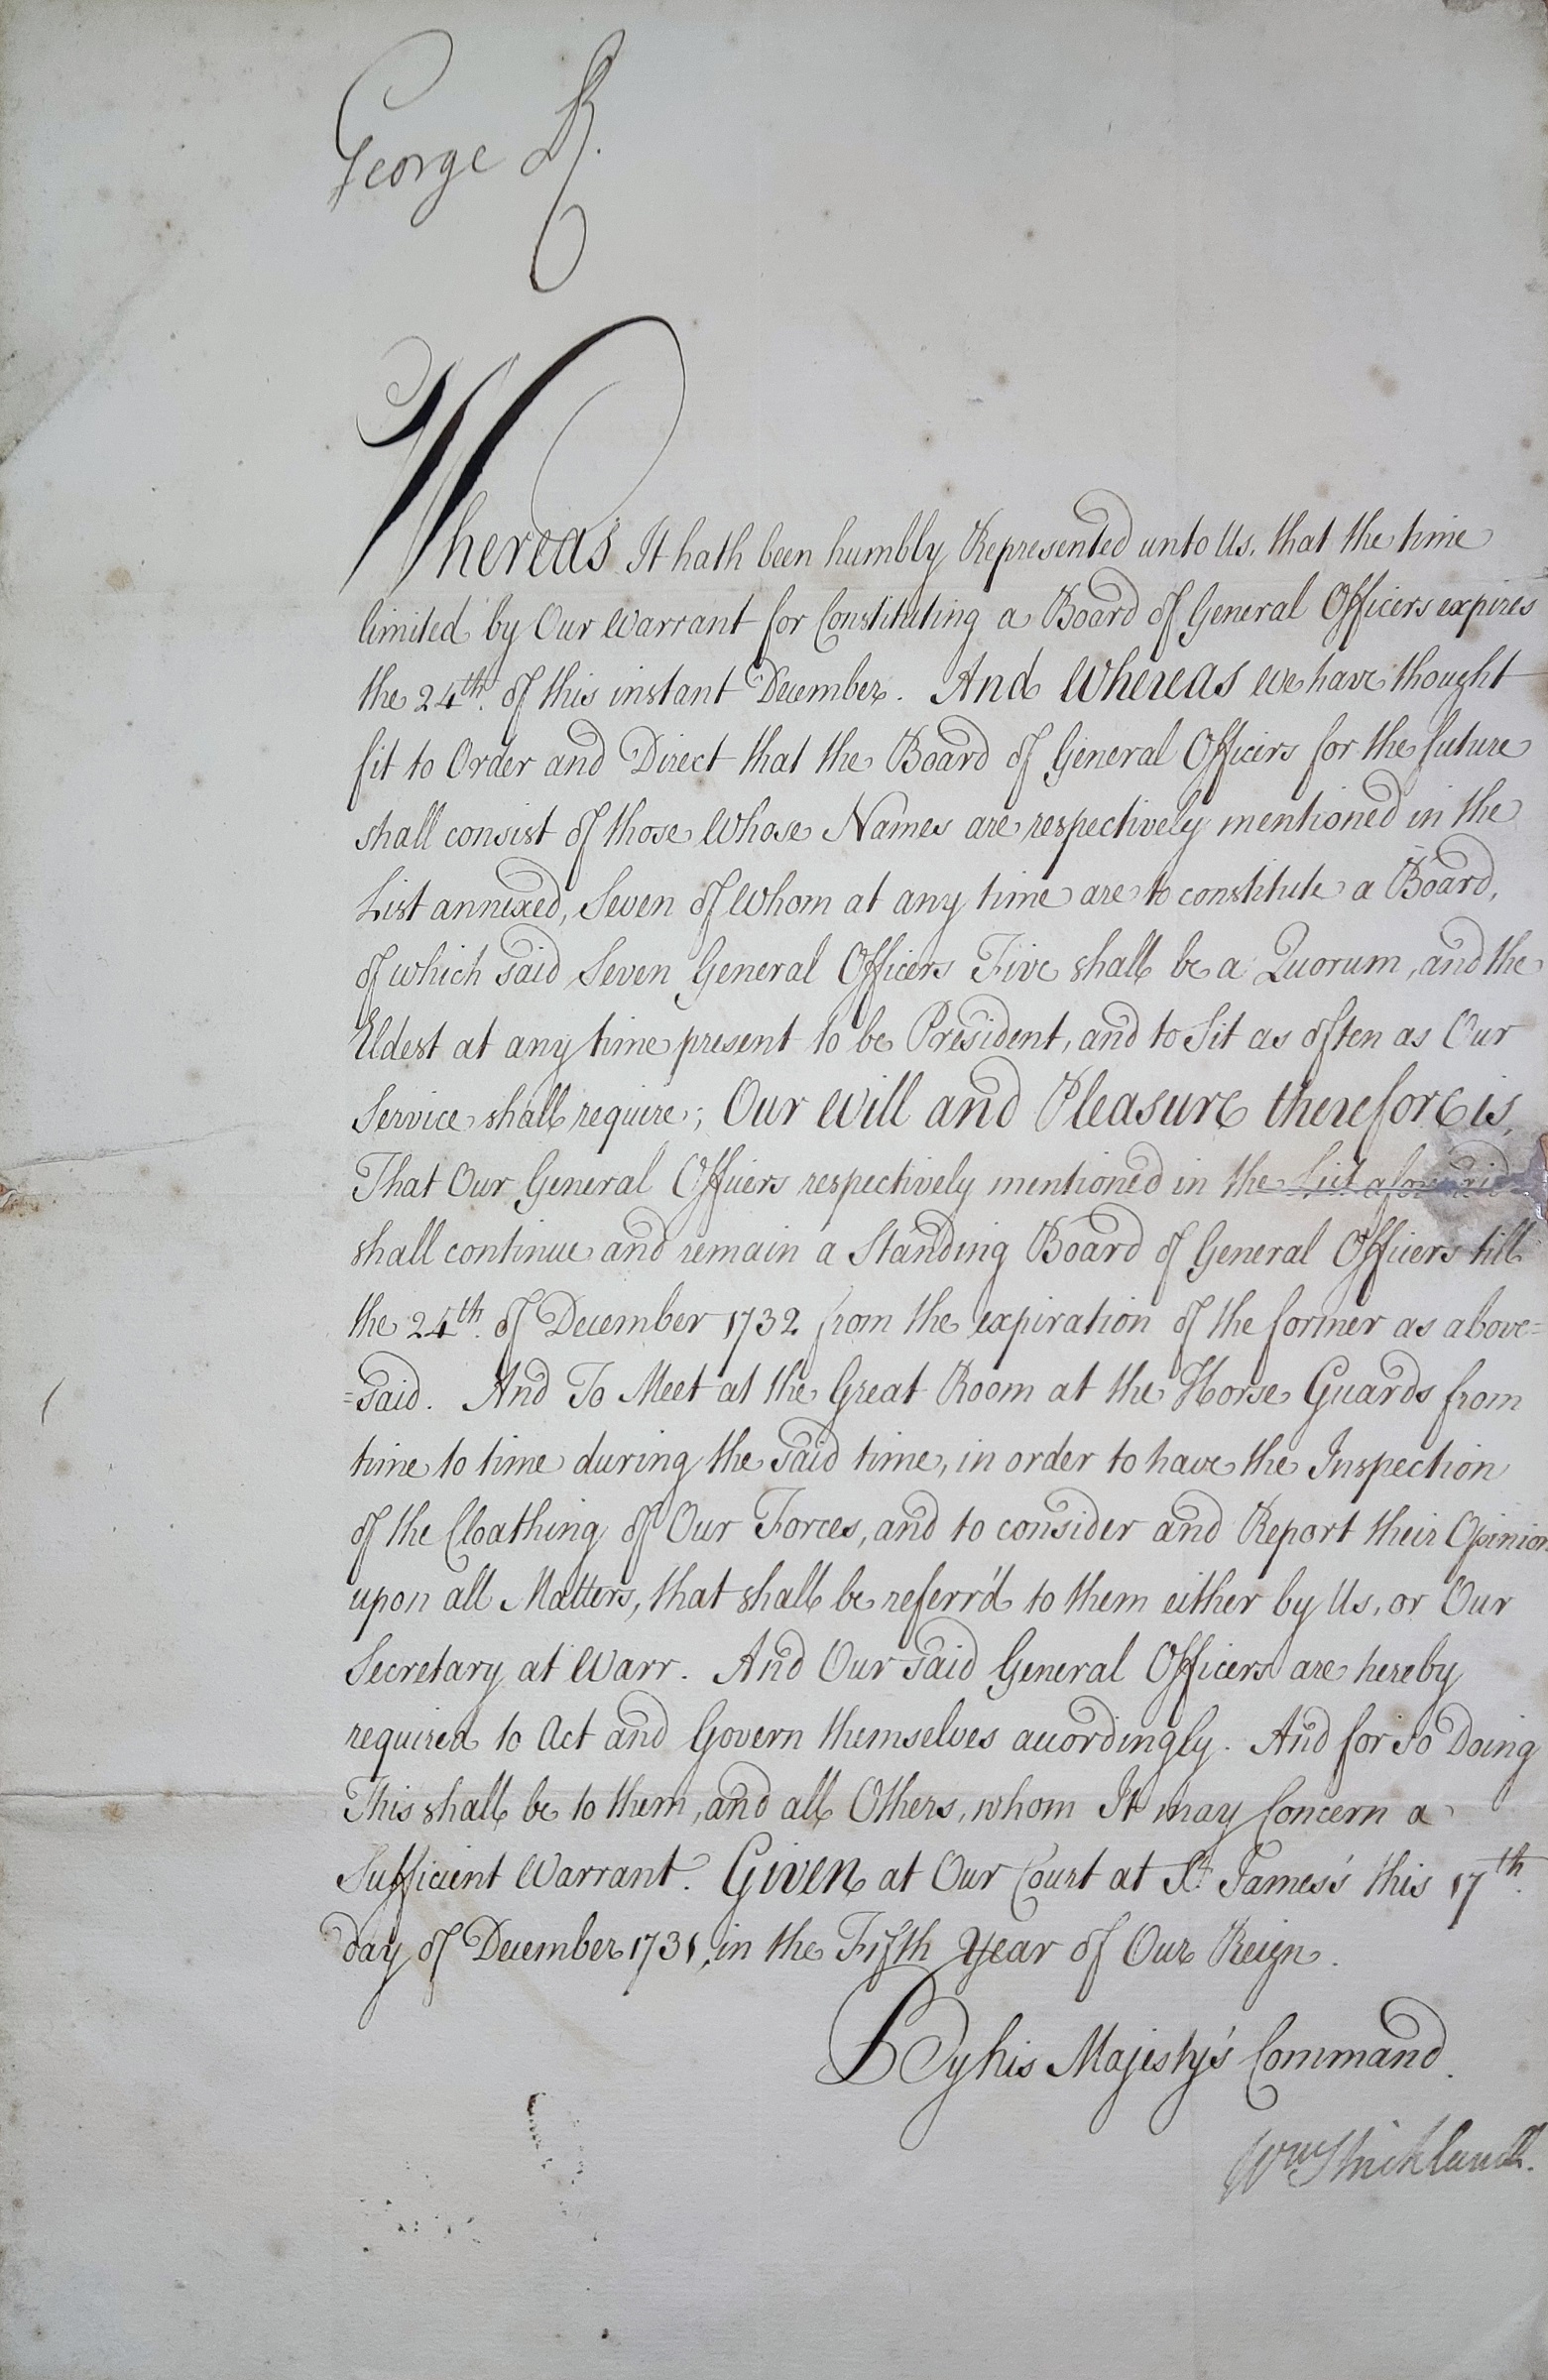 George R.
Whereas It hath been humbly Represented unto Us, that the time
limited by Our Warrant for Constituting a Board of General Officers expires
the 24th. of this instant December. And Whereas We have thought
fit to Order and Direct that the Board of General Officers for the future
shall consist of those Whose Names are respectively mentioned in the
List annexed, Seven of Whom at any time are to constitute a Board,
of which said Seven General Officers Five shall be a Quorum, and the
Eldest at any time present to be President, and to Sit as often as Our
Service shall require; Our Will and Pleasure therefore is,
That Our General Officers respectively mentioned in the List aforesaid
shall continue and remain a Standing Board of General Officers till
the 24th. of December 1732 from the expiration of the former as above=
=said. And To Meet at the Great Room at the Horse Guards from
time to time during the said time, in order to have the Inspection
of the Cloathing of Our Forces, and to consider and Report their Opinion
upon all Matters, that shall be referr'd to them either by Us, or Our
Secretary at Warr. And Our said General Officers are hereby
required to Act and Govern themselves accordingly. And for so Doing
This shall be to them, and all Others, whom It may Concern a
Sufficient Warrant. Given at Our Court at St. James's this 17th.
day of December 1731, in the Fifth Year of Our Reign.
By his Majesty's Command.
Wm Strickland.